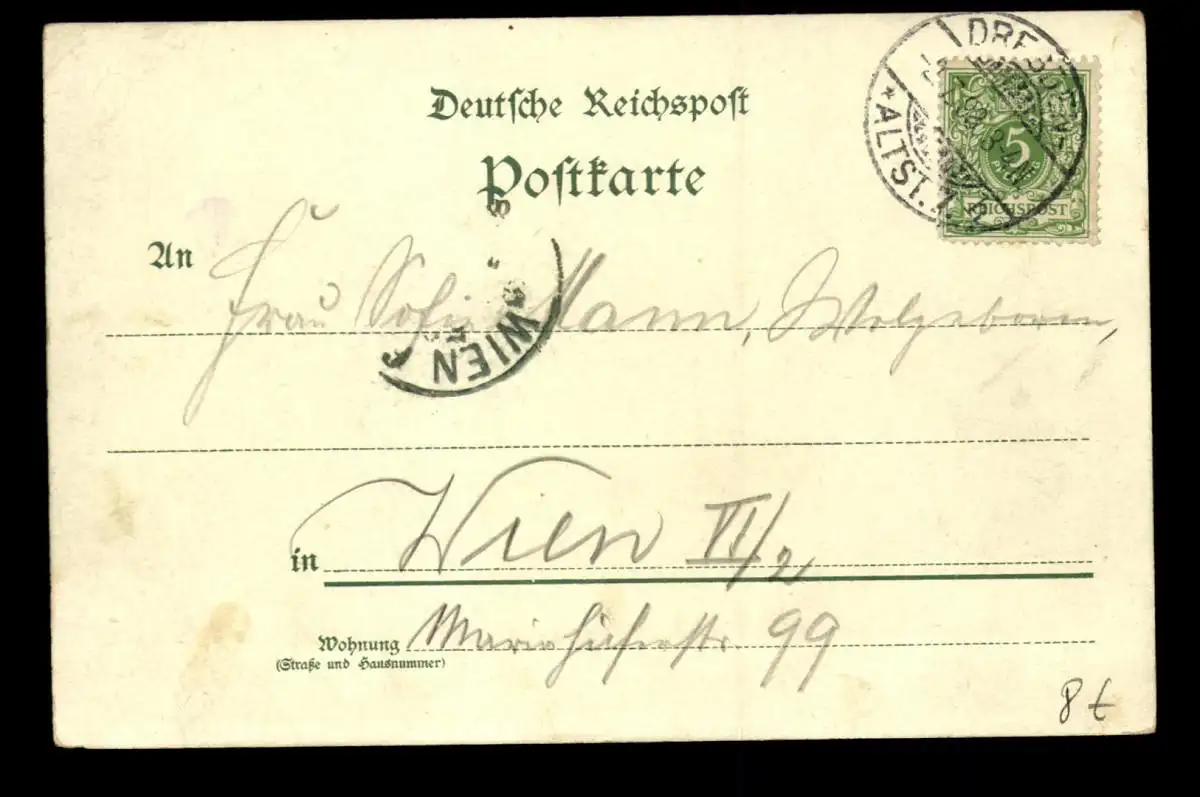 Deutsche Reichspost
Postkarte
DRESDEN
* ALTST. 1.
5
PFENNIG
REICHSPOST
An Frau Sofie Mann,
WIEN
in Wien VI/2
Wohnung Mariahilferstr. 99
(Straße und Hausnummer)
8 €